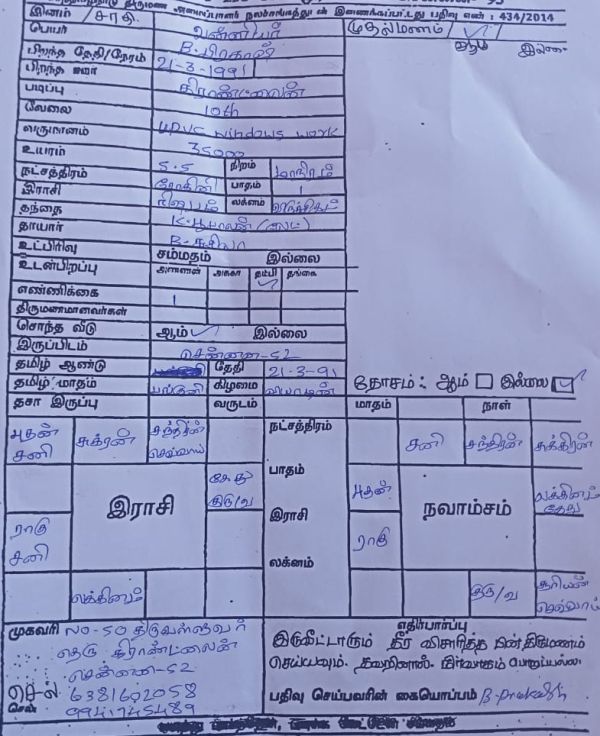 திருமண அமைப்பாளர் நலச்சங்கத்துடன் இணைக்கப்பட்டது பதிவு எண் : 434/2014
இனம் / சாதி வன்னியர் முதல்மணம் ஆம் இல்லை
பெயர் B. பிரகாஷ்
பிறந்த தேதி/நேரம் 21-3-1991
பிறந்த ஊர் கிராண்ட்லைன்
படிப்பு 10th
வேலை UPVC windows work
வருமானம் 35000
உயரம் 5.5 நிறம் மாநிறம்
நட்சத்திரம் ரோகினி பாதம் 1
இராசி ரிஷபம் லக்னம்
தந்தை K. பூபாலன்
தாயார் B.
உட்பிரிவு சம்மதம் இல்லை
உடன்பிறப்பு அண்ணன் அக்கா தம்பி தங்கை
எண்ணிக்கை 1
திருமணமானவர்கள்
சொந்த வீடு ஆம் இல்லை
இருப்பிடம் சென்னை-52
தமிழ் ஆண்டு தேதி 21-3-91
தமிழ் மாதம் பங்குனி கிழமை வியாழன் தோசம் : ஆம் இல்லை
தசா இருப்பு வருடம் மாதம் நாள்
புதன் சனி சுக்ரன் சந்திரன் செவ்வாய் நட்சத்திரம் சனி சந்திரன் சுக்கிரன்
பாதம்
இராசி கேது குரு/வ புதன் நவாம்சம் லக்கினம் கேது
இராசி
ராகு சனி ராகு
லக்னம்
லக்கினம் குரு/வ சூரியன் செவ்வாய்
முகவரி NO-50 திருவள்ளுவர்
தெரு கிராண்ட்லைன்
சென்னை-52
செல் 6381692058
செல் 9941745489
எதிர்பார்ப்பு
இருவீட்டாரும் தீர விசாரித்த பின் திருமணம்
செய்யவும். தவறினால். நிர்வாகம் பொறுப்பல்ல
பதிவு செய்பவரின் கையொப்பம் B. Prakash